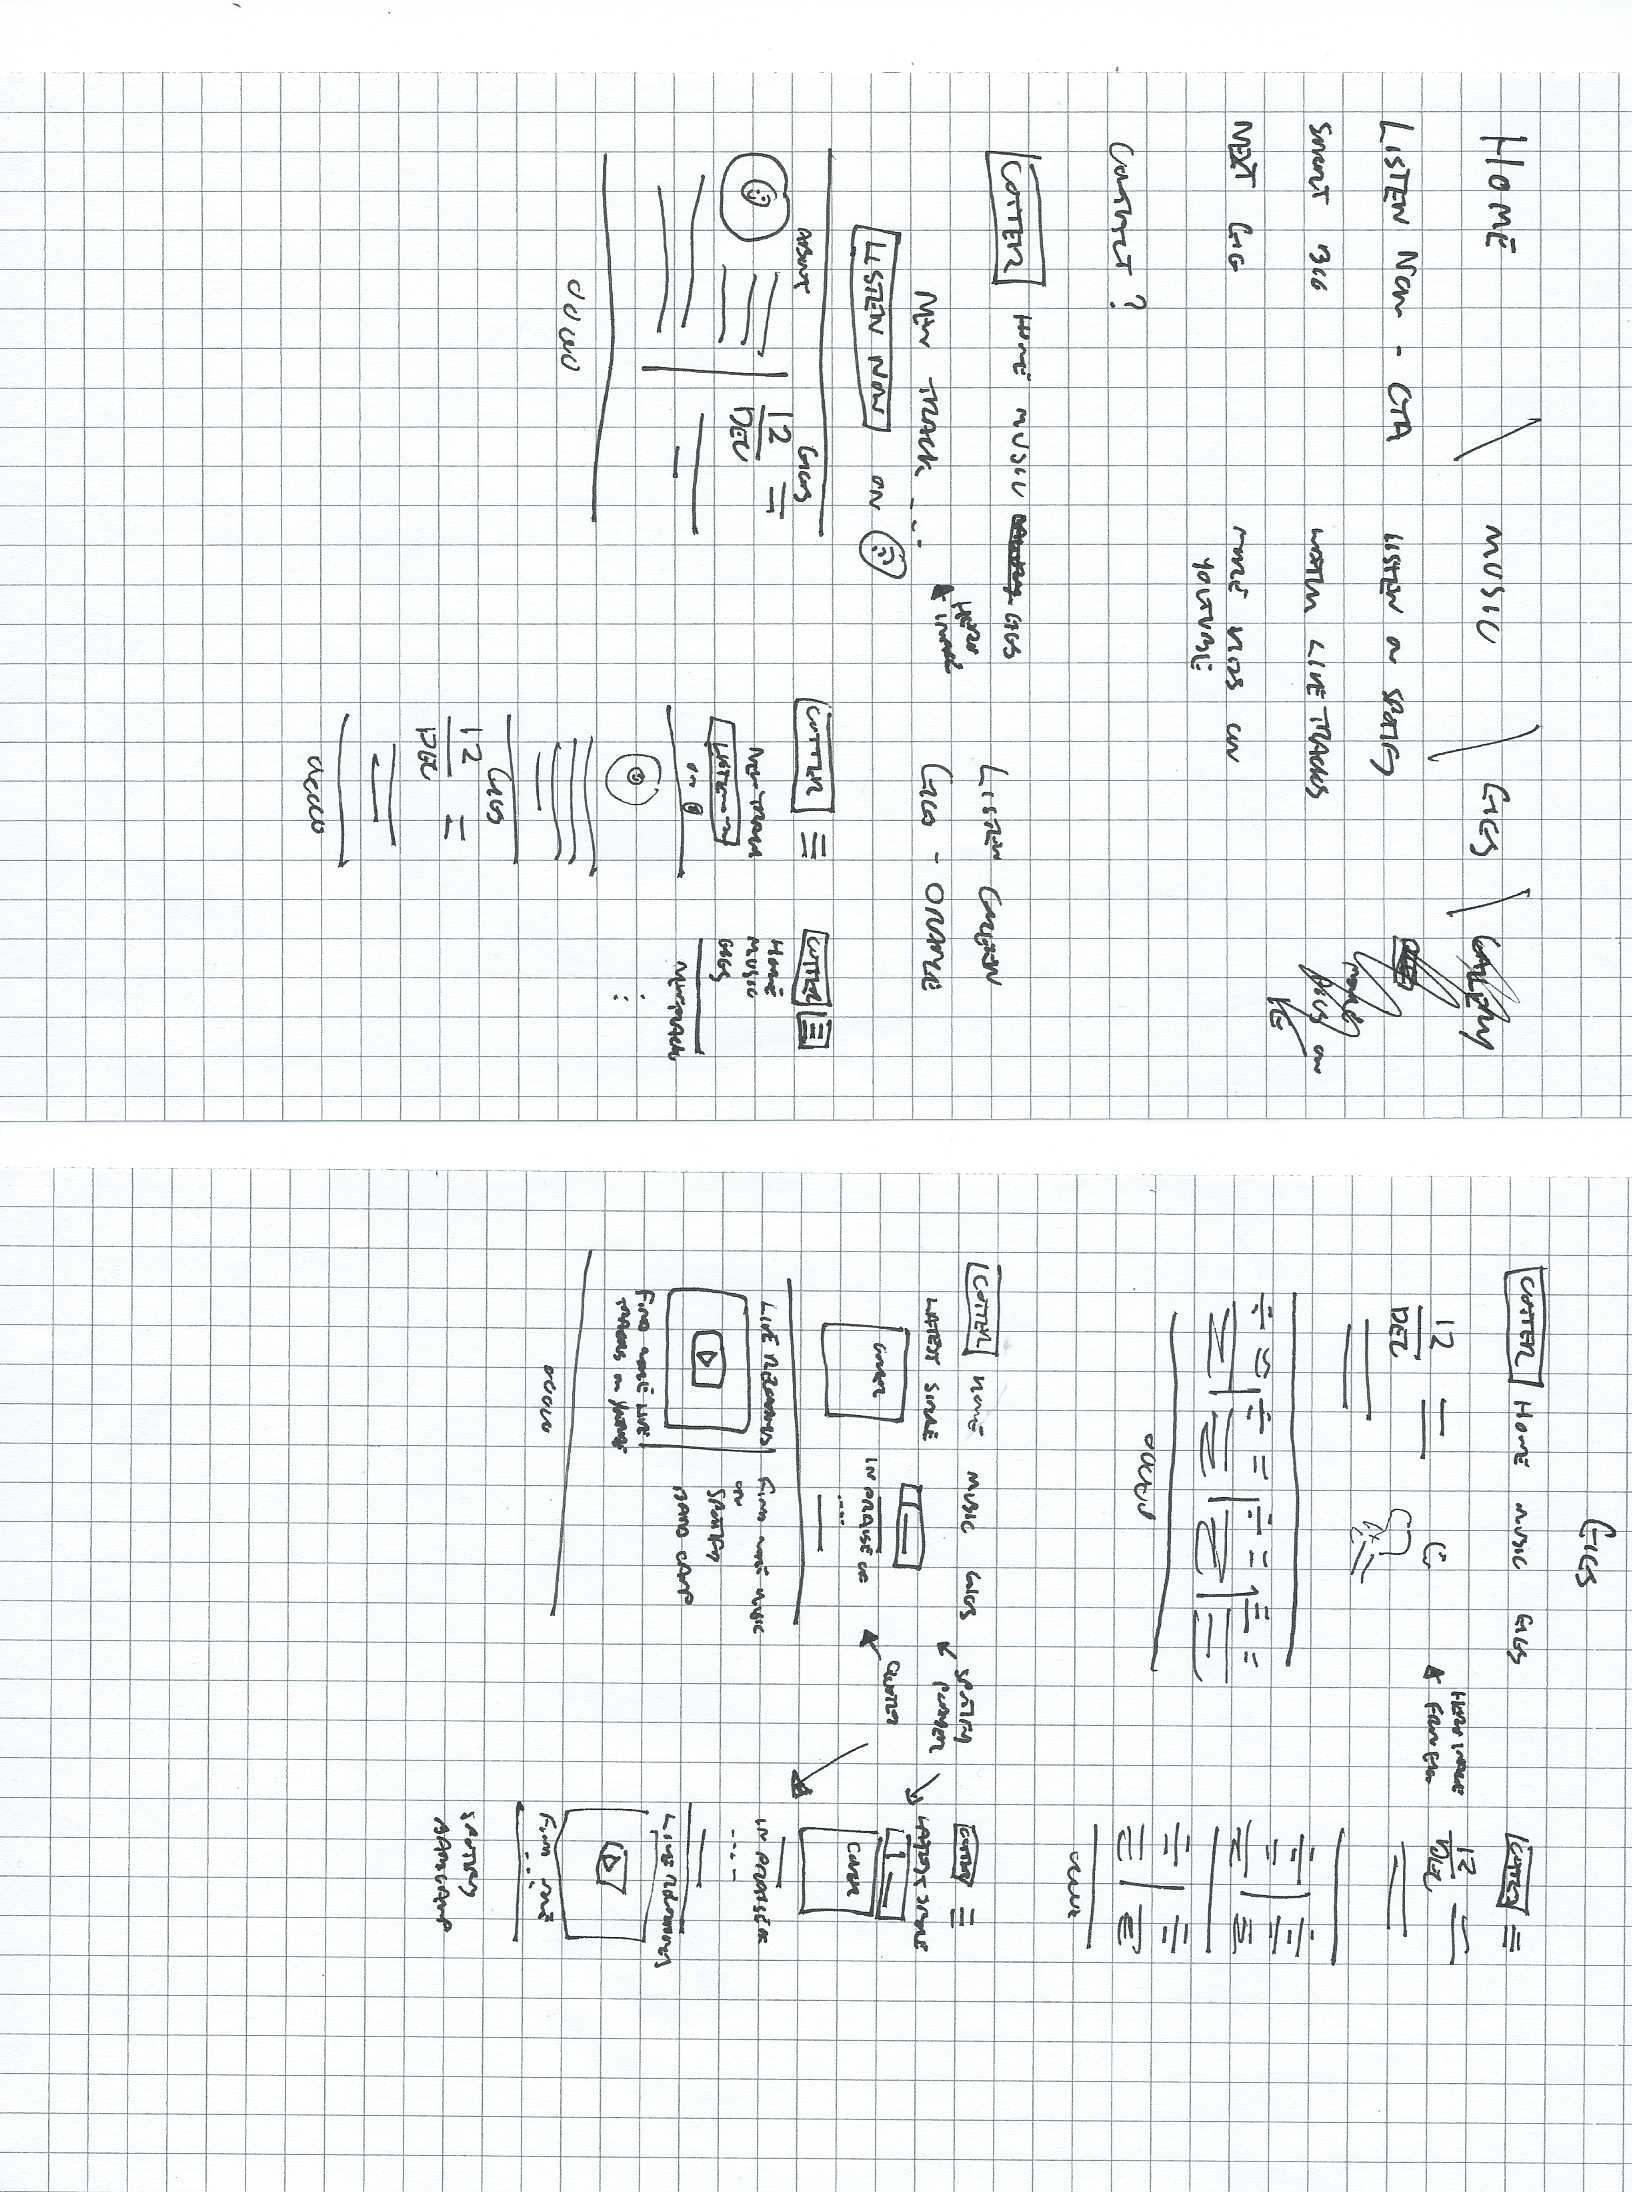 HOME
MUSIC
GIGS
GALLERY
LISTEN NOW - CTA
LISTEN ON SPOTIFY
SHORT BIO
WATCH LIVE TRACKS
MORE
PICS ON
NEXT GIG
MORE VIDS ON
YOUTUBE
CONTACT?
COTTER HOME MUSIC GIGS
HERO
IMAGE
NEW TRACK ...
LISTEN NOW ON
ABOUT
GIGS
12
DEC
LISTEN GREEN
GIGS - ORANGE
COTTER
NEW TRACK
LISTEN
ON
GIGS
12
DEC
COTTER
HOME
MUSIC
GIGS
NEW TRACK
GIGS
COTTER HOME MUSIC GIGS
12
DEC
HERO IMAGE
FROM GIG
COTTER
12
DEC
COTTER HOME MUSIC GIGS
LATEST SINGLE
COVER
IN PRAISE OF
....
SPOTIFY
QUOTES
LIVE RECORDINGS
FIND MORE LIVE
TRACKS ON YOUTUBE
FIND MORE MUSIC
ON
SPOTIFY
BAND CAMP
COTTER
LATEST SINGLE
COVER
IN PRAISE OF
....
LIVE RECORDINGS
FIND MORE
...
SPOTIFY
BANDCAMP